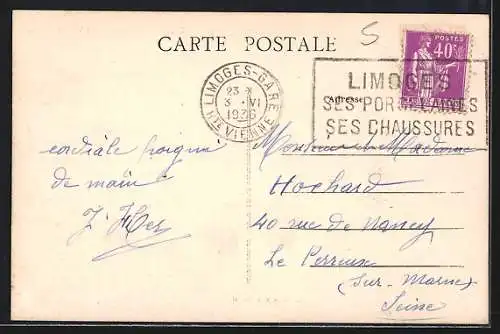 CARTE POSTALE
5
POSTES
40c
LIMOGES-GARE
23 X
3 - VI
1936
Hte VIENNE
LIMOGES
SES PORCELAINES
SES CHAUSSURES
Adresse
cordiale poignée
de main
Monsieur et Madame
Hochard
40 rue de Nancy
Le Perreux
(sur-Marne)
Seine